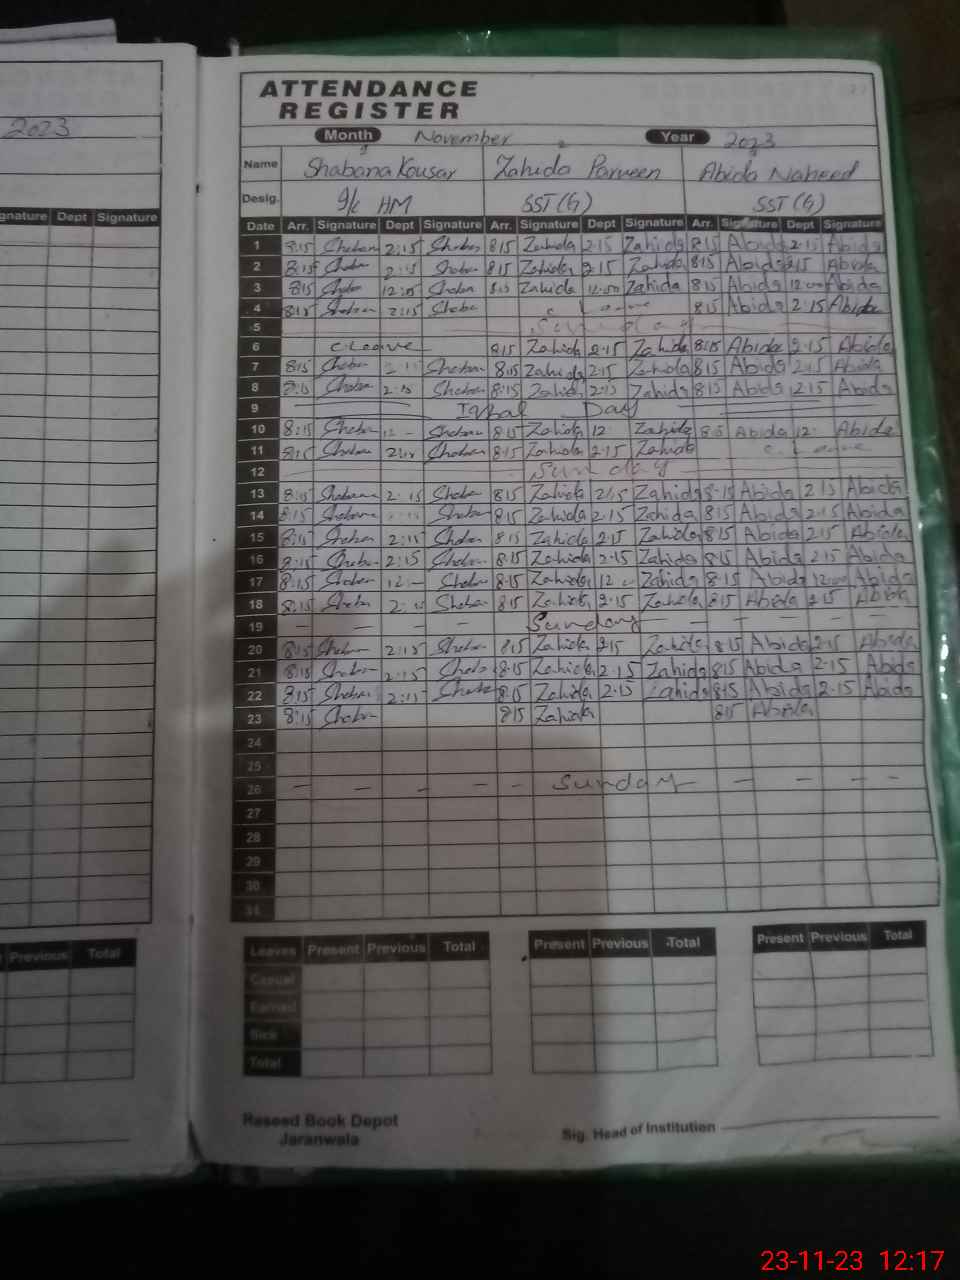 2023
Signature Dept Signature
ATTENDANCE
REGISTER
Month November Year 2023
Name Shabana Kousar Zahida Parveen Abida Naheed
Desig. I/c HM SST(G) SST(G)
Date Arr. Signature Dept Signature Arr. Signature Dept Signature Arr. Signature Dept Signature
1 8:15 Shaban 2:15 Shaban 815 Zahida 2.15 Zahida 815 Abida 2.15 Abida
2 8:15 Shaban 2:15 Shaban 815 Zahida 2.15 Zahida 815 Abida 2.15 Abida
3 815 Shaban 12:05 Shaban 815 Zahida 12.00 Zahida 815 Abida 12.00 Abida
4 815 Shaban 2:15 Shaban c. Leave 815 Abida 2.15 Abida
5 Sunday
6 c Leave 815 Zahida 2.15 Zahida 8:15 Abida 2.15 Abida
7 8:15 Shaban Shaban 8.15 Zahida 2.15 Zahida 815 Abida 2.15 Abida
8 8:15 Shaban 2:15 Shaban 8:15 Zahida 2.15 Zahida 815 Abida 2.15 Abida
9 Iqbal Day
10 8:15 Shaban 12 - Shaban 8.15 Zahida 12 Zahida 8.15 Abida 12: Abida
11 8:15 Shaban 2:15 Shaban 8.15 Zahida 2.15 Zahida c. Leave
12 Sunday
13 8:15 Shabana 2:15 Shaban 815 Zahida 2.15 Zahida 8.15 Abida 2.15 Abida
14 8:15 Shabana Shaban 815 Zahida 2.15 Zahida 815 Abida 2.15 Abida
15 8:15 Shaban 2:15 Shaban 815 Zahida 2.15 Zahida 815 Abida 2.15 Abida
16 8:15 Shaban 2:15 Shaban 8.15 Zahida 2.15 Zahida 815 Abida 2.15 Abida
17 8:15 Shaban 12:- Shaban 8.15 Zahida 12 Zahida 8.15 Abida 12.00 Abida
18 8:15 Shaban 2:15 Shaban 815 Zahida 2.15 Zahida 815 Abida 2.15 Abida
19 - - - - Sunday - - - - -
20 8:15 Shaban 2:15 Shaban 815 Zahida 2.15 Zahida 8.15 Abida 2.15 Abida
21 8:15 Shaban 2:15 Shaban 8.15 Zahida 2.15 Zahida 815 Abida 2.15 Abida
22 8:15 Shaban 2:15 Shaban 8.15 Zahida 2.15 Zahida 815 Abida 2.15 Abida
23 8:15 Shaban 815 Zahida 815 Abida
24
25
26 - - - - - Sunday - - - - -
27
28
29
30
31
Leaves Present Previous Total Present Previous Total Present Previous Total
Casual
Earned
Sick
Total
Previous Total
Raseed Book Depot
Jaranwala
Sig. Head of Institution
23-11-23 12:17